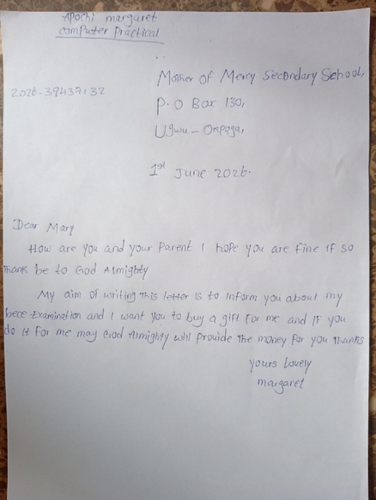 Apochi margaret
computer practical
Mother of Mercy Secondary School,
2026-39437132
P.O Bar 130,
Ugwu-Okpoga,
1st June 2026.
Dear Mary
How are you and your Parent I hope you are fine if so
thank be to God Almighty
My aim of writing this letter is to inform you about my
bece Examination and I want you to buy a gift for me and if you
do it for me may God Almighty will provide the money for you thanks
yours lovely
margaret